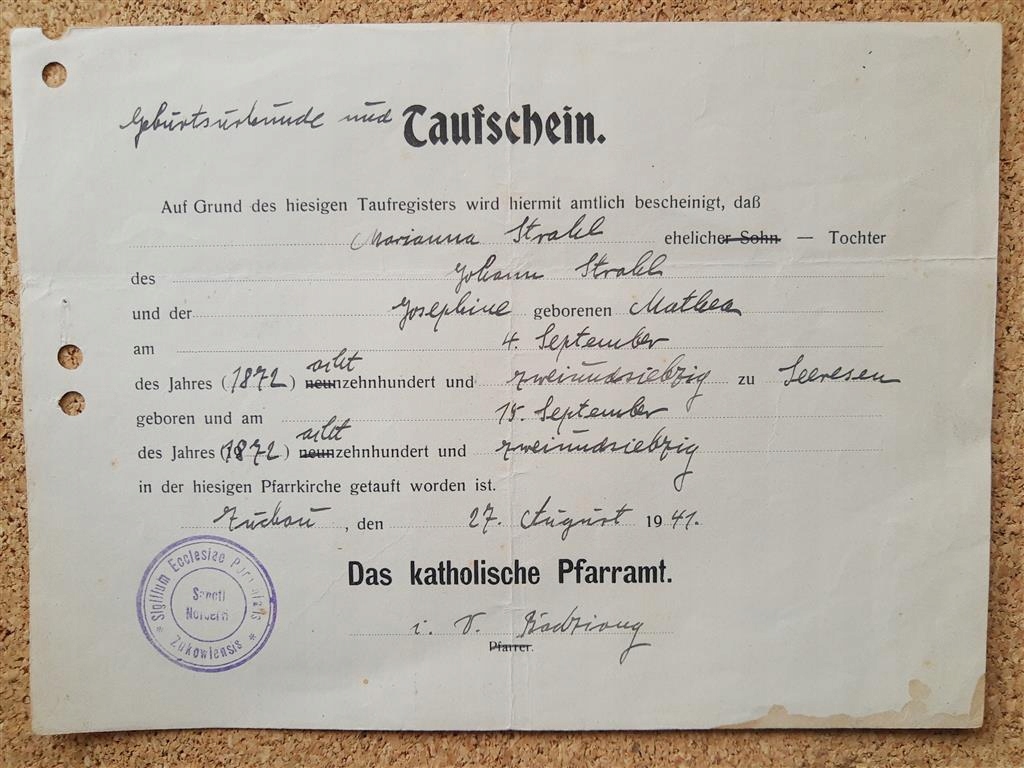 Geburtsurkunde und Taufschein.
Auf Grund des hiesigen Taufregisters wird hiermit amtlich bescheinigt, daß
Marianna Strahl ehelicher Sohn — Tochter
des Johann Strahl
und der Josephine geborenen Mathea
am 4. September
des Jahres (1872) neun acht zehnhundert und zweiundsiebzig zu Seeresen
geboren und am 15. September
des Jahres (1872) neun acht zehnhundert und zweiundsiebzig
in der hiesigen Pfarrkirche getauft worden ist.
Zuckau, den 27. August 1941.
Das katholische Pfarramt.
i. V.
Pfarrer.
Sigillum Ecclesiae Parochialis
Sancti
Norberti
Zukowiensis